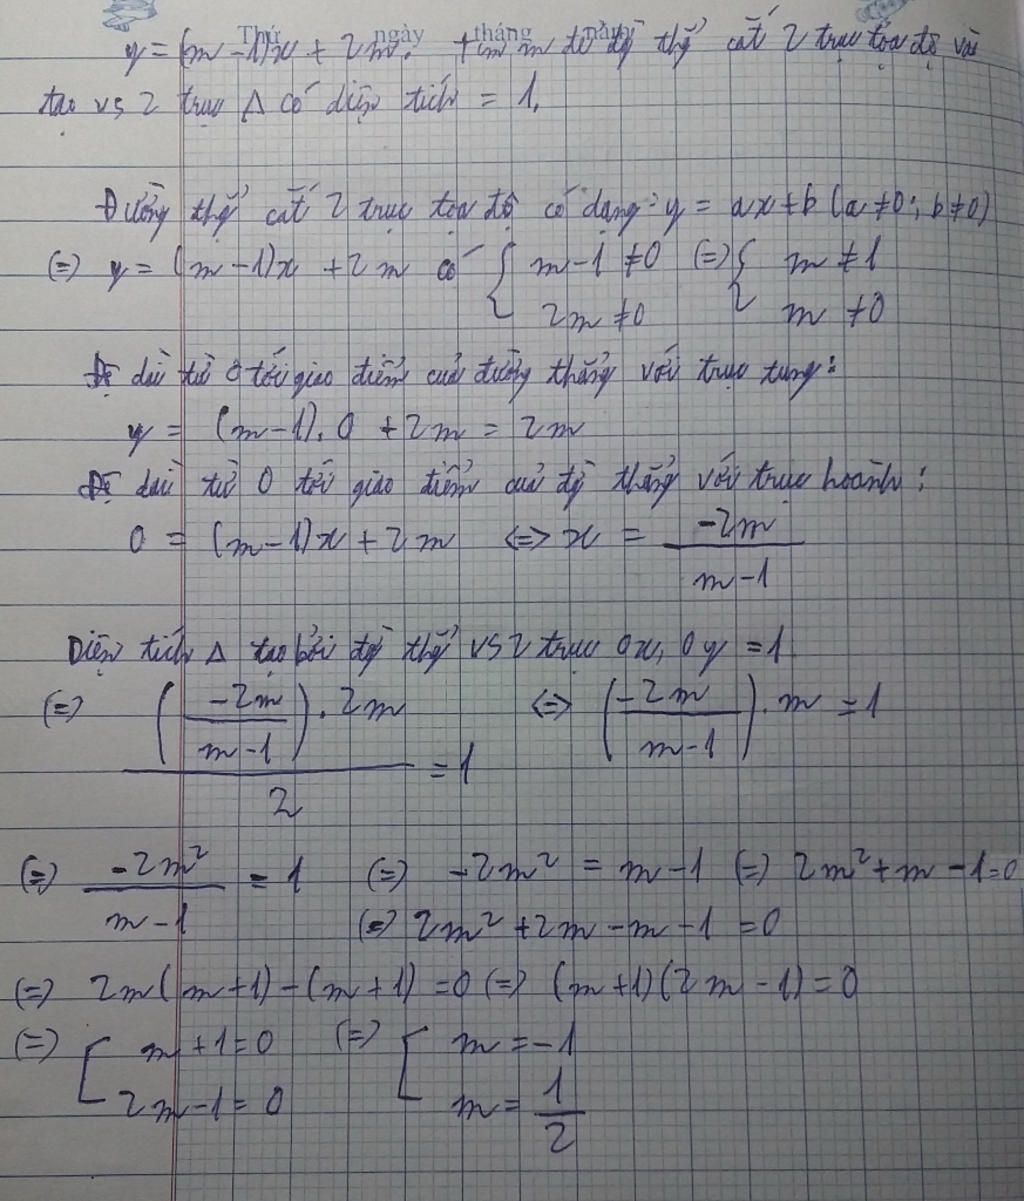 Thứ ngày tháng năm
y = (m-1)x + 2m. tìm m để đg thẳg cắt 2 trục tọa độ và
tạo vs 2 trục Δ có diện tích = 1.
Đường thẳg cắt 2 trục tọa độ có dạng: y = ax+b (a≠0; b≠0)
(=) y = (m-1)x + 2m có { m-1 ≠0 (=) { m ≠ 1
2m ≠0 m ≠0
Độ dài từ O tới giao điểm của đường thẳng với trục tung:
y = (m-1).0 + 2m = 2m
Độ dài từ O tới giao điểm của đg thẳng với trục hoành:
0 = (m-1)x + 2m <=> x = -2m / m-1
Diện tích Δ tạo bởi đg thẳg vs 2 trục Ox, Oy = 1
(=) (-2m / m-1).2m / 2 = 1 <=> (-2m / m-1).m = 1
(=) -2m² / m-1 = 1 (=) -2m² = m-1 (=) 2m²+m-1=0
(=) 2m² +2m -m -1 =0
(=) 2m(m+1)-(m+1) =0 (=) (m+1)(2m-1)=0
(=) [ m+1=0 (=) [ m=-1
2m-1=0 m= 1/2